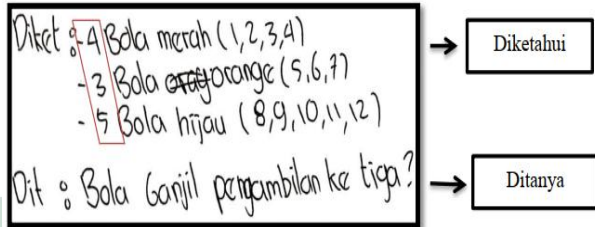 Diket : - 4 Bola merah (1,2,3,4)
- 3 Bola orange (5,6,7)
- 5 Bola hijau (8,9,10,11,12)
Dit : Bola Ganjil pengambilan ke tiga?
Diketahui
Ditanya